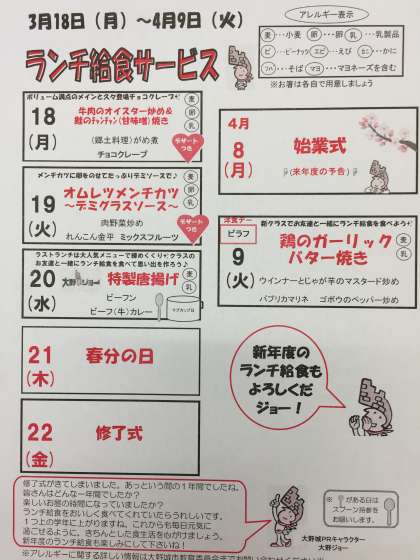 3月18日（月）～4月9日（火）
ランチ給食サービス
アレルギー表示
麦…小麦 卵…卵 乳…乳製品
ピ…ピーナッツ エビ…えび カニ…かに
ソバ…そば マヨ…マヨネーズを含む
※お箸は各自で用意しましょう
ボリューム満点のメインとスタ登場チョコクレープ
18
（月）
牛肉のオイスター炒め＆
鮭のチャンチャン（甘味噌）焼き
（郷土料理）がめ煮
チョコクレープ
麦
卵
乳
デザート
つき
メンチカツに卵をのせてたっぷりデミソースで♪
19
（火）
オムレツメンチカツ
～デミグラスソース～
肉野菜炒め
れんこん金平 ミックスフルーツ
麦
卵
乳
デザート
つき
ラストランチは大人気メニューで締めくくり クラスの
お友達と一緒にランチ給食を食べて思い出を作ろう♪
20
（水）
大野ジョー
特製唐揚げ
ビーフン
ビーフ（牛）カレー
麦
乳
マグカップ日
21
（木）
春分の日
22
（金）
修了式
4月
8
（月）
始業式
（来年度の予告）
洋食デー
ピラフ
新クラスでお友達と一緒にランチ給食を食べよう！
9
（火）
鶏のガーリック
バター焼き
麦
卵
乳
ウインナーとじゃが芋のマスタード炒め
パプリカマリネ ゴボウのペッパー炒め
新年度の
ランチ給食も
よろしくだ
ジョー！
修了式がきてしまいました。あっという間の１年間でしたね。
皆さんはどんな一年間でしたか？
楽しいお昼の時間になっていましたか？
ランチ給食をおいしく食べてくれていたらうれしいです。
１つ上の学年に上がりますね。これからも毎日元気に
過ごせるように、きちんとした食生活を心がけましょう。
新年度のランチ給食も楽しみにして下さいね！
大野城PRキャラクター
大野ジョー
※ がある日は
スプーン持参を
お願いします。
※アレルギーに関する詳しい情報は大野城市教育委員会までお問い合わせください